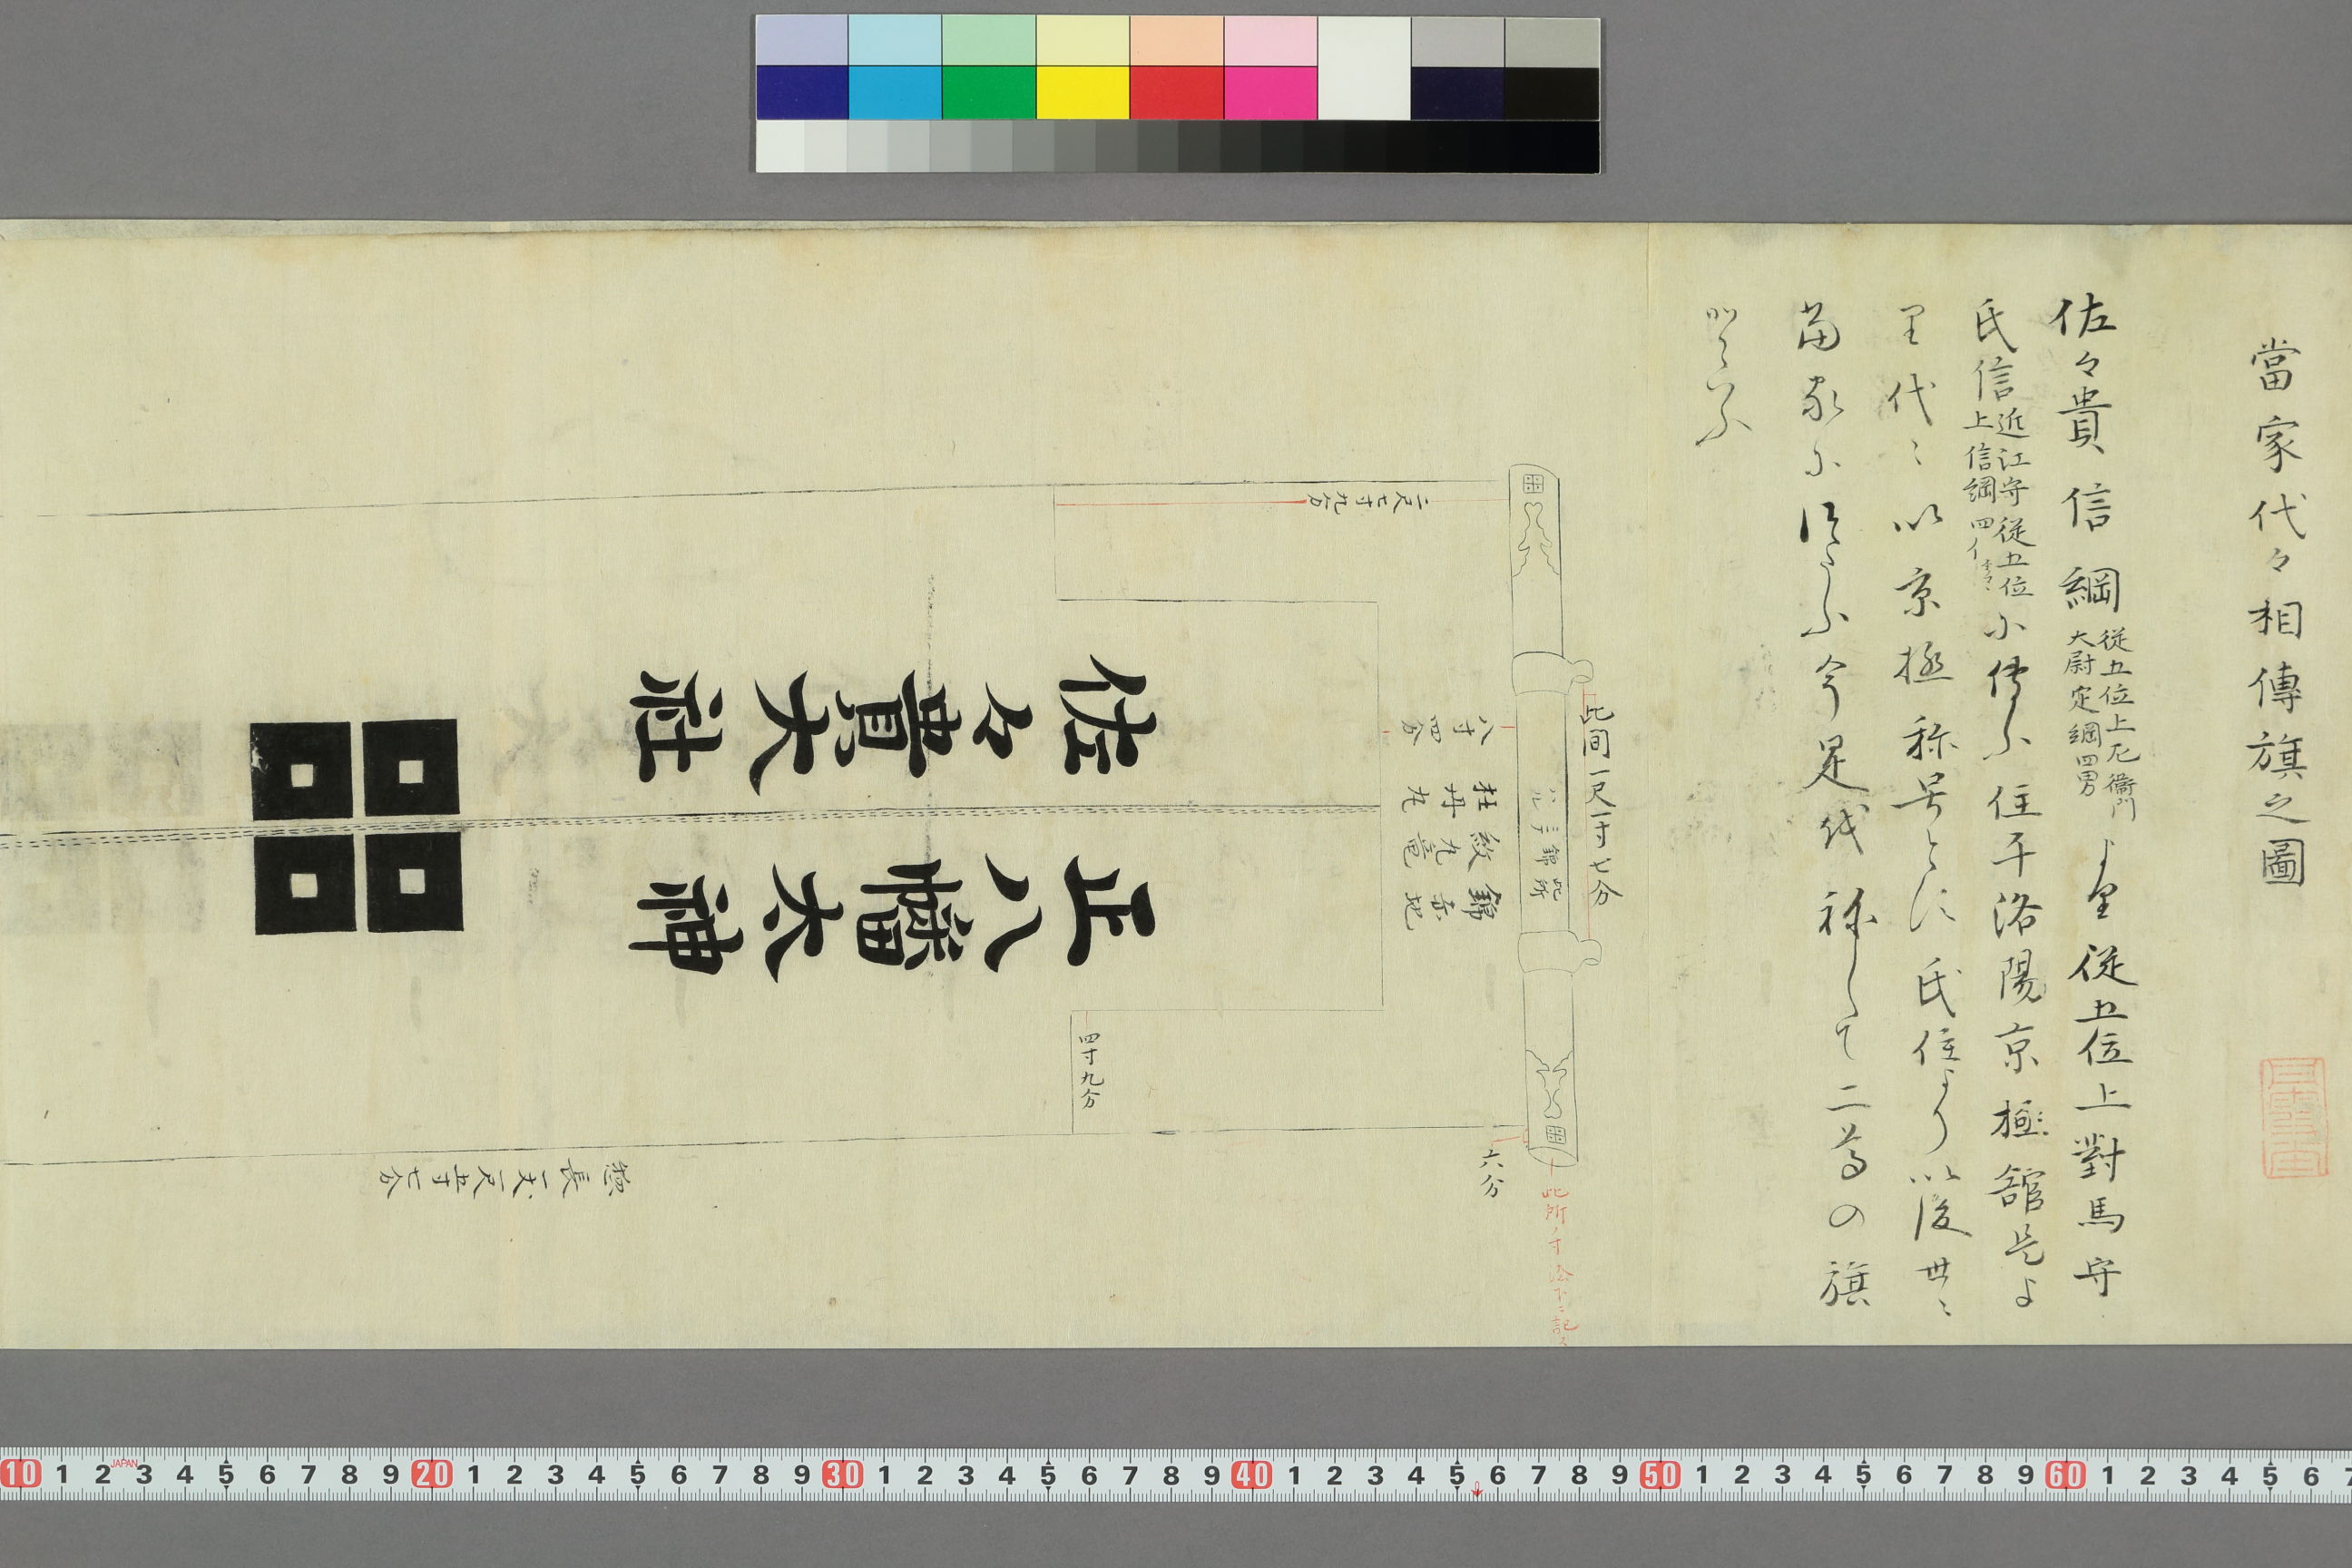 當家代々相傳旗之圖
佐々貴信綱 従五位上左衛門
大尉定綱四男 より従五位上對馬守
氏信 近江守従五位
上信綱四男 に傳ふ住于洛陽京極舘是よ
り代々以京極称号とに氏信より以後世々
當家に傳ふ今是代称して二尊の旗
といふ
此間一尺一寸七分
八寸四分
二尺七寸九分
此所
錦
錦赤地
紋九竜
牡丹
四寸九分
六分
此所ノ寸法下ニ記ス
正八幡大神
佐々貴大社
惣長一丈一尺五寸七分
10 1 2 JAPAN 3 4 5 6 7 8 9 20 1 2 3 4 5 6 7 8 9 30 1 2 3 4 5 6 7 8 9 40 1 2 3 4 5 6 7 8 9 50 1 2 3 4 5 6 7 8 9 60 1 2 3 4 5 6 7